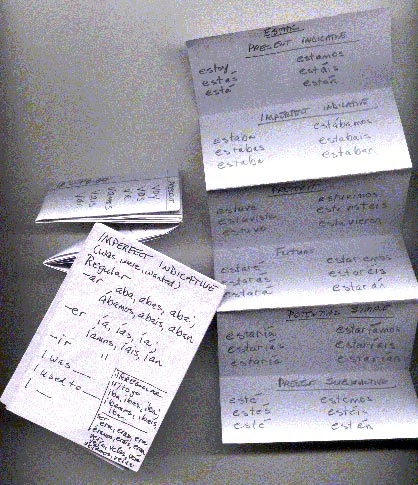 ESTAR
PRESENT INDICATIVE
estoy estamos
estás estáis
está están
IMPERFECT INDICATIVE
estaba estábamos
estabas estabais
estaba estaban
PRETERIT
estuve estuvimos
estuviste estuvisteis
estuvo estuvieron
FUTURE
estaré estaremos
estarás estaréis
estará estarán
POTENTIAL SIMPLE
estaría estaríamos
estarías estaríais
estaría estarían
PRESENT SUBJUNCTIVE
esté estemos
estés estéis
esté estén
voy
vas
va
vamos
IMPERFECT INDICATIVE
(was, were, wanted)
Regular
-ar
aba, abas, aba,
ábamos, abais, aban
-er
ía, ías, ía,
íamos, íais, ían
-ir "
I was
I used to
I
IRREGULAR
iba, ibas, iba,
íbamos, ibais,
iban
era, eras, era,
éramos, erais, eran
veía, veías, veía